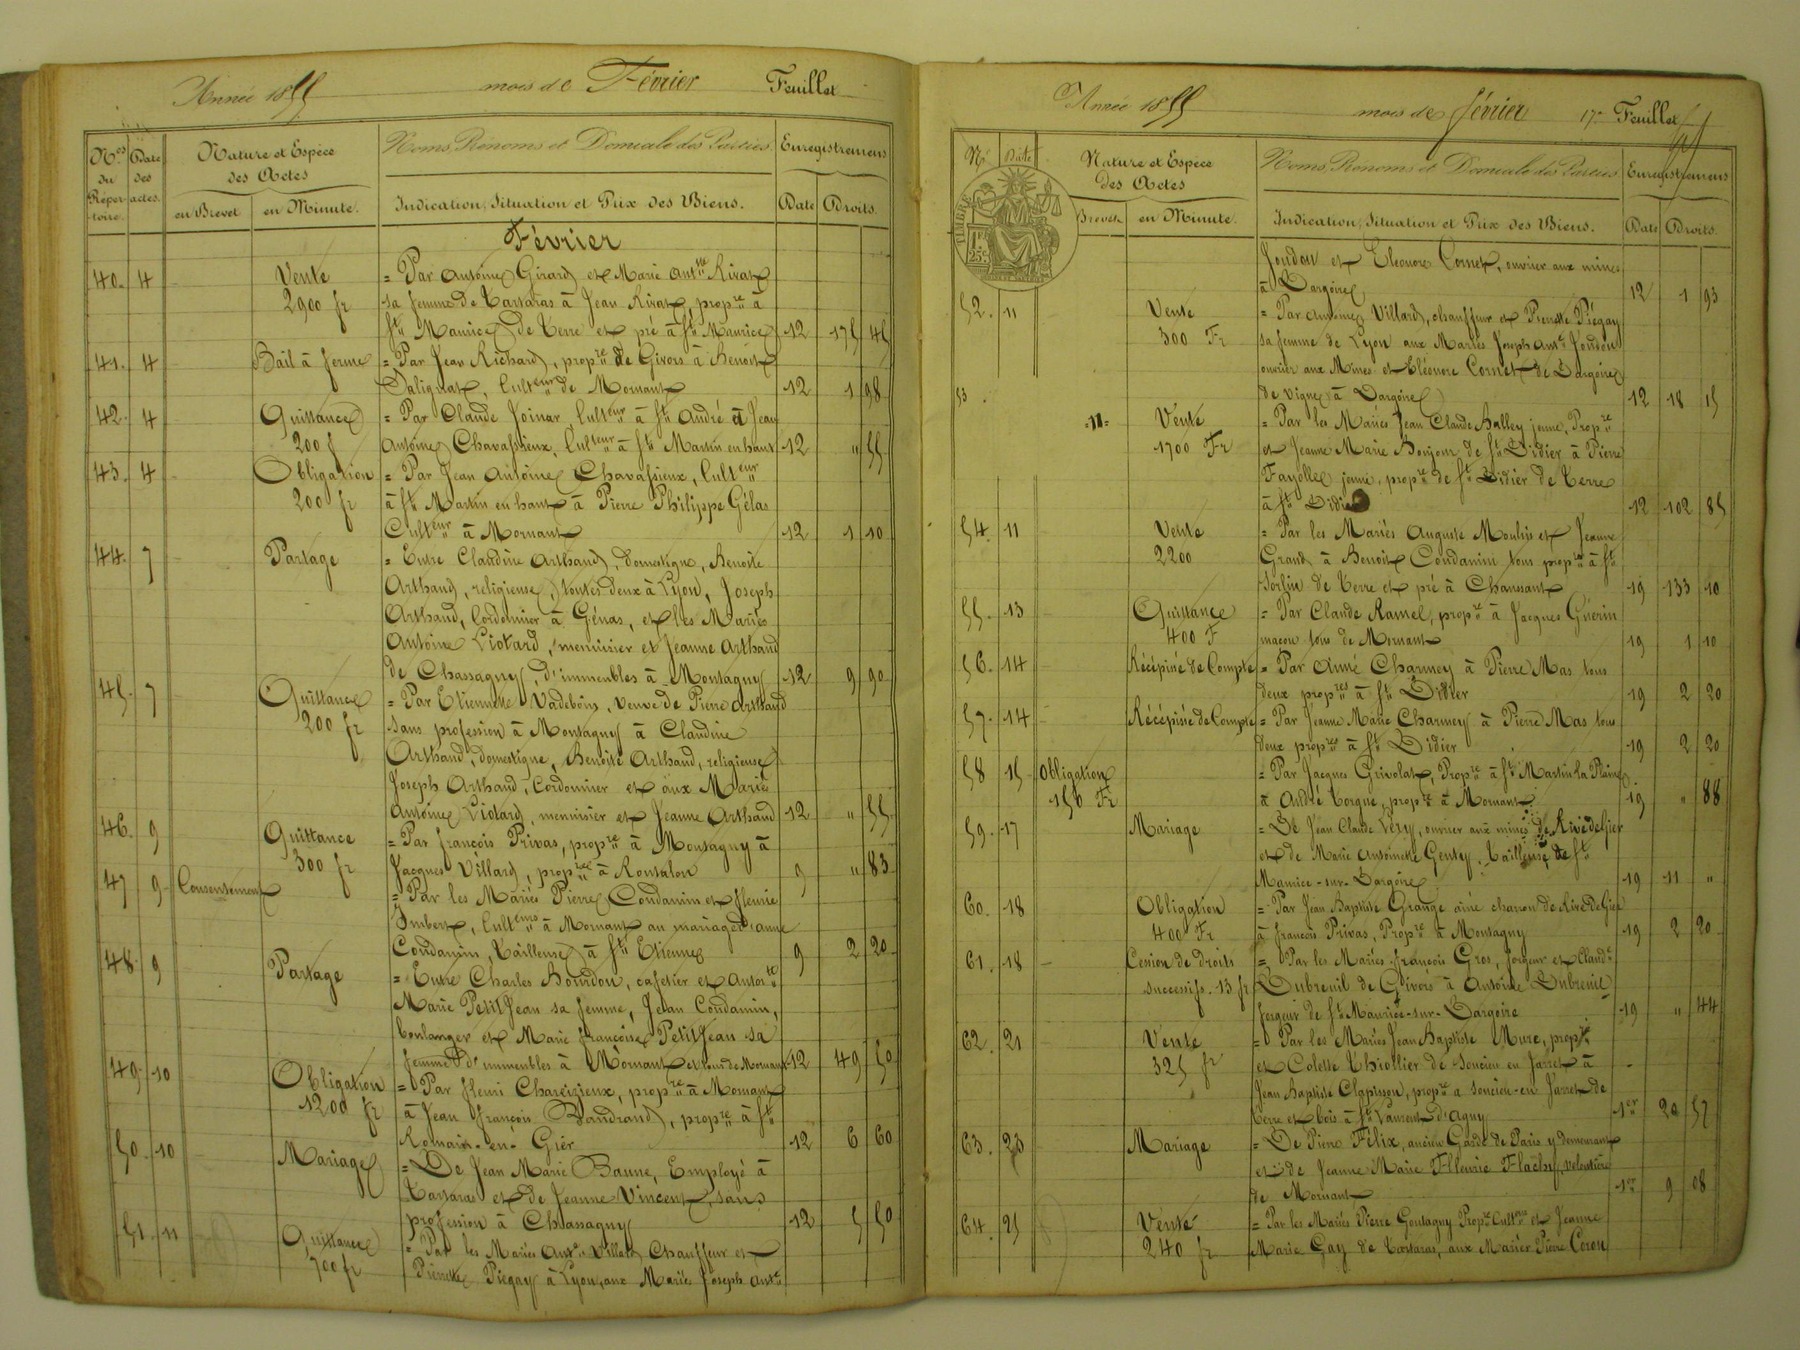 Année 1855 mois de Février Feuillet
Nos du Répertoire. Date des actes. Nature et Espèce des Actes Noms, Prénoms et Domicile des Parties Enregistrement
en Brevet en Minute. Indication, Situation et Prix des Biens. Date Droits.
Février
40. 4 Vente = Par Antoine Girard et Marie Antte Rivat
2900 fr sa femme de Tartaras à Jean Rivat, propre à
St Maurice de Terre et pré à St Maurice 12 175 45
41. 4 Bail à ferme = Par Jean Richard, propre de Givors à Benoît
Salignat, Culteur de Mornant 12 1 98
42. 4 Quittance = Par Claude Joinar, Culteur à St André et Jean
200 f Antoine Chavassieux, Culteur à St Martin en haut 12 " 55
43. 4 Obligation = Par Jean Antoine Chavassieux, Culteur
200 fr à St Martin en haut à Pierre Philippe Gélas
Culteur à Mornant 12 1 10
44. 7 Partage = Entre Claudine Arthaud, domestique, Benoîte
Arthaud, religieuse, toutes deux à Lyon, Joseph
Arthaud, Cordonnier à Génas, et les Mariés
Antoine Viotard, menuisier et Jeanne Arthaud
de Chassagny, d'immeubles à Montagny 12 9 90
45. 7 Quittance = Par Etiennette Vadebois, Veuve de Pierre Arthaud
200 fr sans profession à Montagny à Claudine
Arthaud, domestique, Benoîte Arthaud, religieuse
Joseph Arthaud, Cordonnier et aux Mariés
Antoine Viotard, menuisier et Jeanne Arthaud 12 " 55
46. 9 Quittance = Par François Privas, propre à Montagny à
300 fr Jacques Villard, propre à Rontalon 9 " 83
47 9 Consentement = Par les Mariés Pierre Condamin et fleurie
Imbert, Culteurs à Mornant au mariage d'anne
Condamin, tailleuse à St Etienne 9 2 20
48. 9 Partage = Entre Charles Bourdon, cafetier et Antoite
Marie PetitJean sa femme, Jean Condamin,
boulanger et Marie françoise PetitJean sa
femme d'immeubles à Mornant et tous de Mornant 12 49 50
49. 10 Obligation = Par Henri Chareizieux, propre à Mornant
1200 fr à Jean François Baudrand, propre à St
Romain-en-Gier 12 6 60
50. 10 Mariage = De Jean Marie Baune, Employé à
Tartaras et de Jeanne Vincent, sans
profession à Chassagny 12 5 50
51. 11 Quittance = Par les Mariés Ante Villard Chauffeur et
700 fr Pierrette Piégay à Lyon, aux Mariés Joseph Ante
Année 1855 mois de février 17e Feuillet
No Date Nature et Espèce des Actes Noms, Prénoms et Domicile des Parties Enregistrement
Brevet en Minute. Indication, Situation et Prix des Biens. Date Droits.
TIMBRE 1f. 25c.
Joudon et Eleonore Cornet, ouvrier aux mines
à Dargoire 12 1 93
52. 11 Vente = Par Antoine Villard, chauffeur et Pierrette Piégay
300 Fr sa femme de Lyon aux Mariés Joseph Ante Joudon
ouvrier aux Mines et Eléonore Cornet de Dargoire
de Vigne à Dargoire 12 18 15
53. 11 Vente = Par les Mariés Jean Claude Balley jeune, Propre
1700 Fr et Jeanne Marie Bonjour de St Didier à Pierre
Fayolle jeune, propre de St Didier de Terre
à St Didier 12 102 85
54. 11 Vente = Par les Mariés Auguste Moulin et Jeanne
2200 Grand à Benoit Condamin tous propres à St
Sorlin de Terre et pré à Chaussant 19 133 10
55. 13 Quittance = Par Claude Ramel, propre à Jacques Guérin
400 F maçon tous de Mornant 19 1 10
56. 14 Récépissé de Compte = Par Aimé Charmey à Pierre Mas tous
deux propres à St Didier 19 2 20
57. 14 Récépissé de Compte = Par Jeanne Marie Charmey à Pierre Mas tous
deux propres à St Didier 19 2 20
58 15 Obligation = Par Jacques Grivolat, Propre à St Martin la Plaine
156 Fr à André Torgue, propre à Mornant 19 " 88
59. 17 Mariage = De Jean Claude Vézy, ouvrier aux mines de Rive de Gier
et de Marie Antoinette Gentey, Tailleuse de St
Maurice-sur-Dargoire 19 11 "
60. 18 Obligation = Par Jean Baptiste Grange aîné charron de Rive de Gier
400 Fr à françois Privas, Propre à Montagny 19 2 20
61. 18 Cession de droits = Par les Mariés françois Gros, forgeur et Claude
successifs. 13 fr Dubreuil de Givors à Antoine Dubreuil
forgeur de St Maurice-sur-Dargoire 19 " 44
62. 21 Vente = Par les Mariés Jean Baptiste Mure, propre
325 fr et Colette Thiollier de Soucieu en Jarret à
Jean Baptiste Clapisson, propre à Soucieu-en-Jarret de
Terre et bois à St Laurent d'Agny 1er 20 57
63. 23 Mariage = De Pierre Félix, ancien Garde de Paris y demeurant
et de Jeanne Marie Fleurie Flachy, veloutière
de Mornant 1er 9 08
64. 25 Vente = Par les Mariés Pierre Goutagny Propre Culteur et Jeanne
240 fr Marie Gay de Tartaras, aux Mariés Pierre Coron